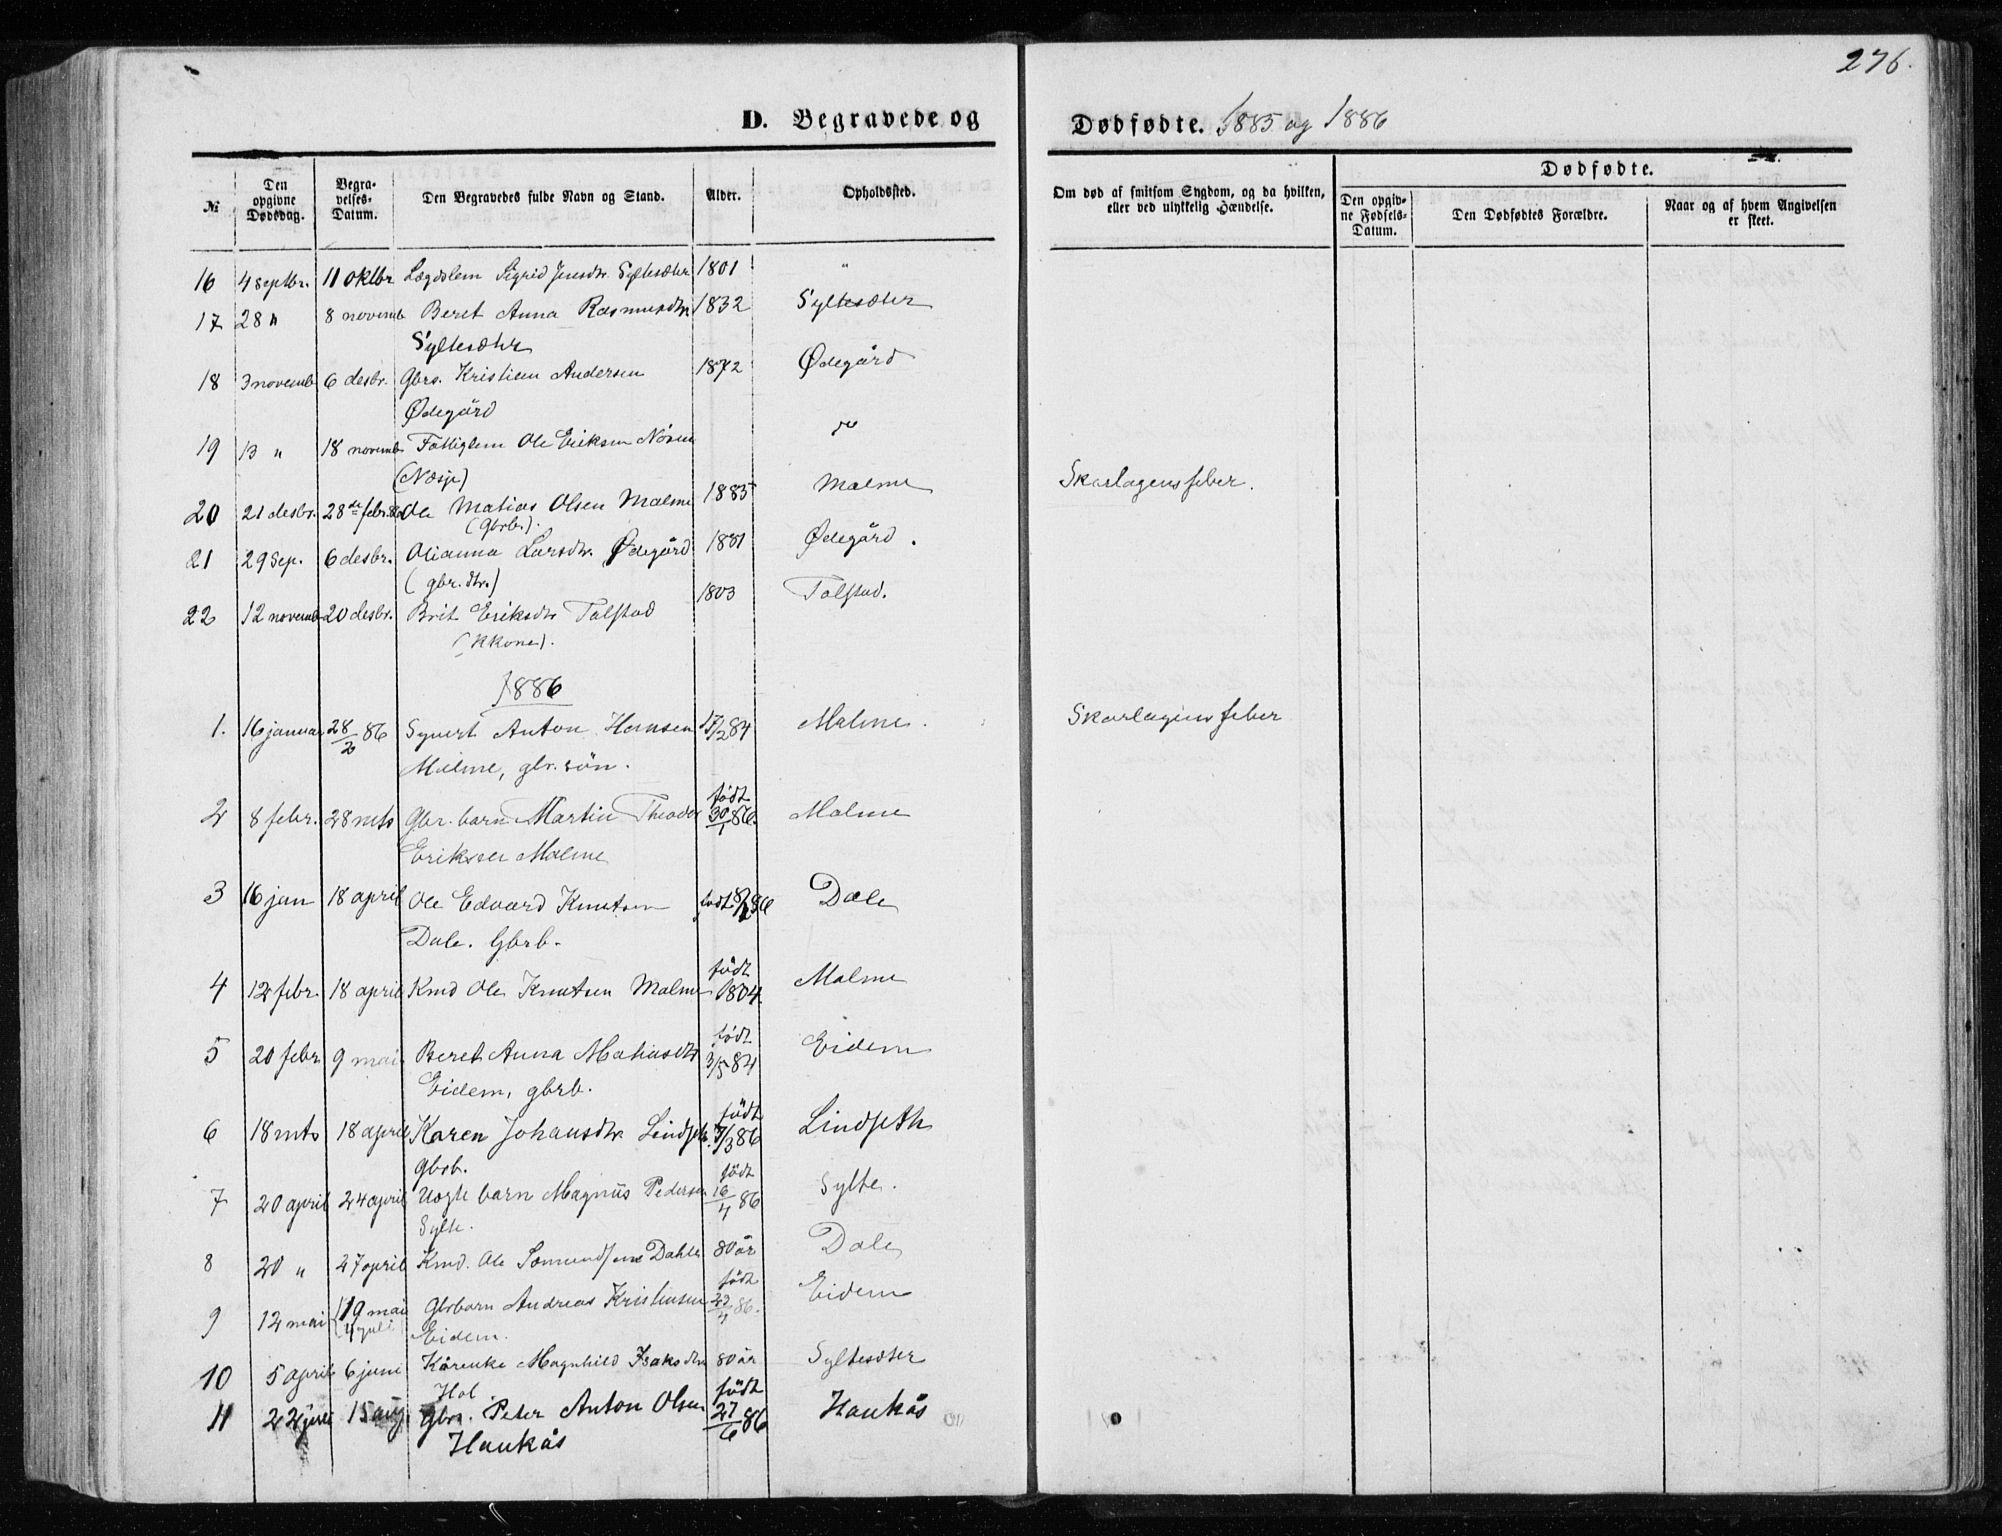 276.
D. Begravede og Dødfødte. 1885 og 1886
№
Den opgivne Dødsdag.
Begravelses-Datum.
Den Begravedes fulde Navn og Stand.
Alder.
Opholdssted.
Om død af smitsom Sygdom, og da hvilken, eller ved ulykkelig Hændelse.
Dødfødte.
Den opgivne Fødsels-Datum.
Den Dødfødtes Forældre.
Naar og af hvem Angivelsen er skeet.
16 4 septbr. 11 oktbr Lægdslem Sigrid Jensdtr Syltesæter 1801 "
17 28 " 8 novemb Beret Anna Rasmusdtr 1832 Syltesæter
Syltesæter
18 3 novemb 6 desbr. Gbrs. Kristian Andersen 1872 Ødegård
Ødegård
19 13 " 18 novemb Fattiglem Ole Eriksen Nösen do
(Næsje)
20 21 desbr. 28de febr. 86 Ole Matias Olsen Malme 1885 Malme Skarlagensfeber.
(gbrb.).
21 29 Sep. 6 desbr. Olianna Larsdtr. Ødegård 1881 Ødegård.
(gbr. dtr.)
22 12 novemb 20 desbr. Brit Eriksdtr Talstad 1803 Talstad.
(Kkone).
1886
1. 16 januar 28/2 86 Syvert Anton Hansen 17/2 84 Malme. Skarlagensfeber
Malme, gbr. sön.
2 8 febr. 28 mts Gbr. barn Martin Theodor født 30/1 86. Malme
Eriksen Malme
3 16 jan 18 april Ole Edvard Knutsen født 8/1 86 Dale
Dale. Gbrb.
4 12 febr. 18 april Kmd Ole Knutsen Malme födt 1804. Malme
5 20 febr 9 mai Beret Anna Matiasdtr födt 3/5 84 Eidem
Eidem, gbrb.
6 18 mts 18 april Karen Johansdtr Lindseth födt 7/3 86 Lindseth
gbrb.
7 20 april 24 april Uegte barn Magnus Pedersen födt 16/4 86 Sylte.
Sylte.
8 20 " 27 april Kmd. Ole Sæmundsen Dahle 80 år Dale
9 12 mai 19 mai 4 juli Gbrbarn Andreas Kristensen födt 22/4 86. Eidem
Eidem.
10 5 april 6 juni Karenke Magnhild Isaksdtr 80 år Syltesæter
Hol
11 22 juli 15 aug. Gbrs. Peter Anton Olsen födt 27/6 86 Haukås
Haukås